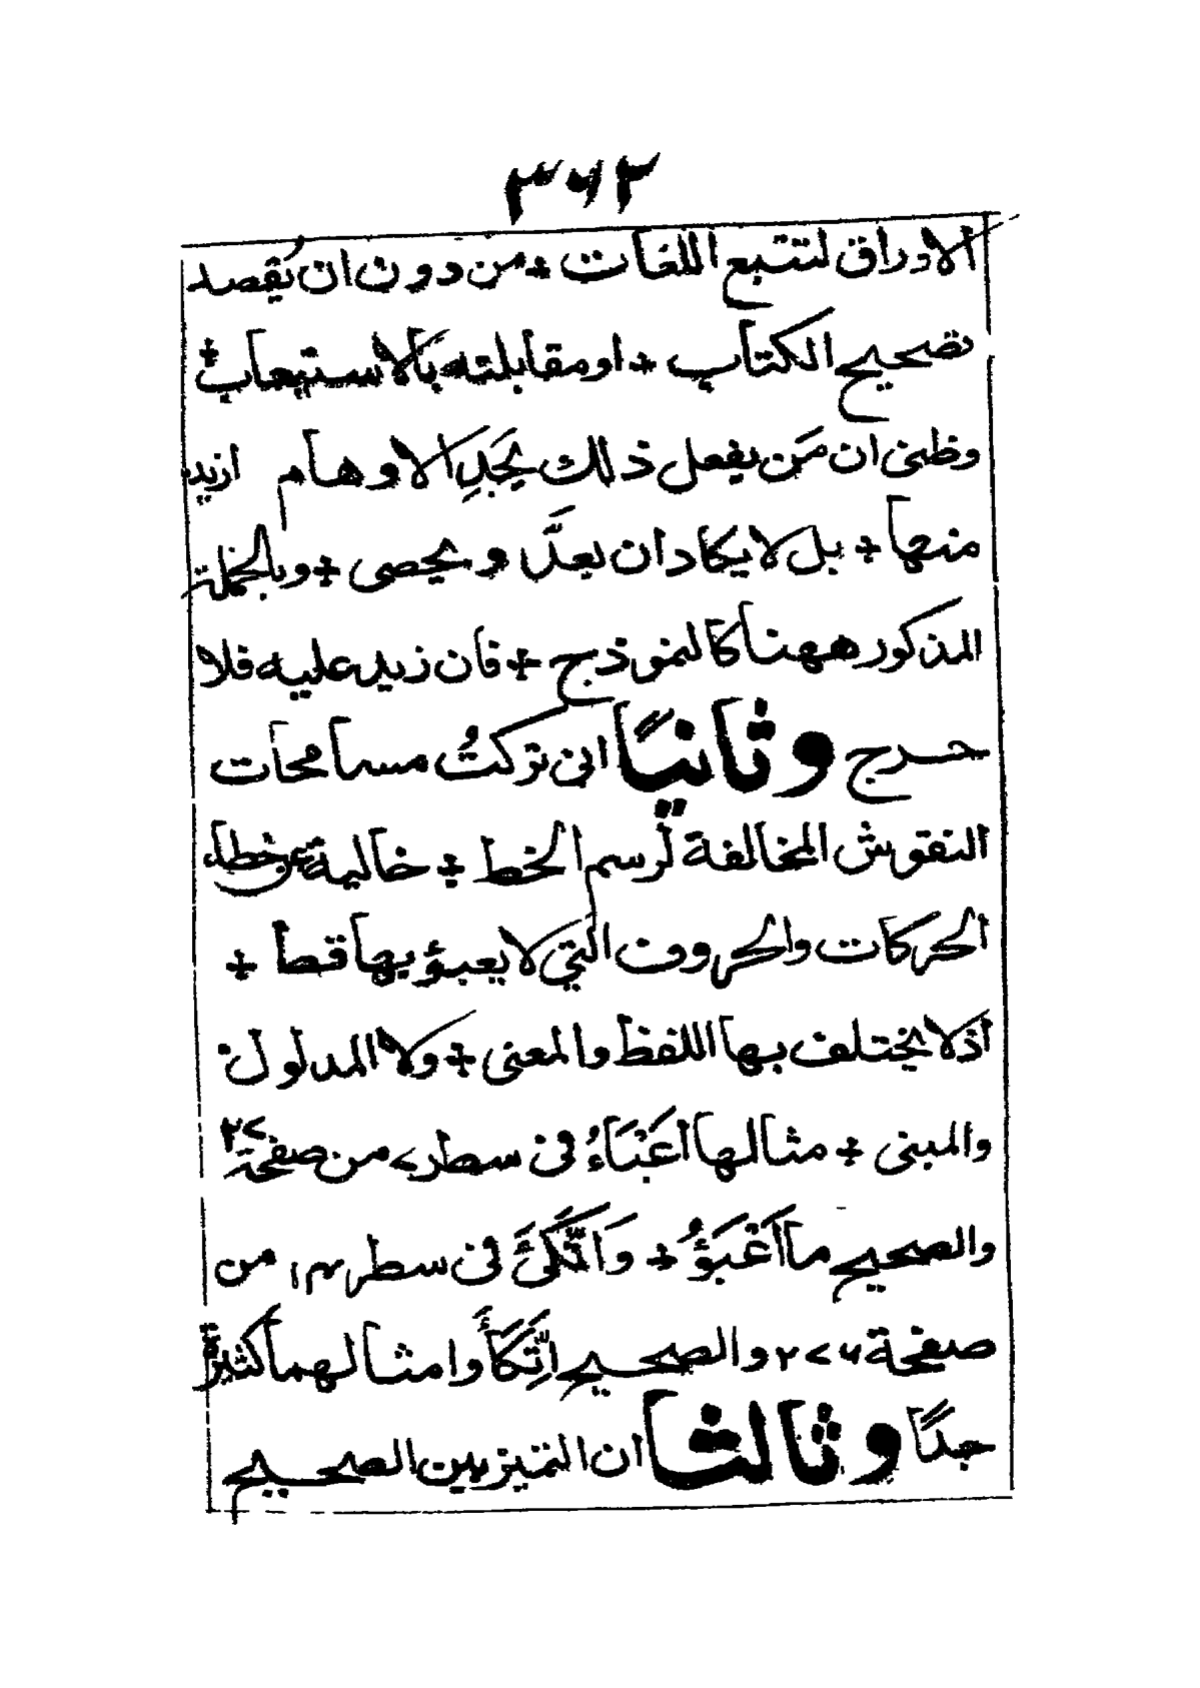 ٣٦٢
الاوراق لتتبع اللغات + من دون ان يُقصد
تصحيح الكتاب + او مقابلته بالاستيعاب +
وظنى ان مَن يفعل ذلك يَجِدِ الاوهام ازيد
منها + بل لا يكاد ان يعدَّ و يحصى + وبالجملة
المذكور ههنا كالنموذج + فان زيد عليه فلا
حرج وثانيًا انى تركتُ مسامحات
النقوش المخالفة لرسم الخط + خالية عن خطاء
الحركات والحروف التي لا يعبؤ بها قط +
اذ لا يختلف بها اللفظ والمعنى + ولا المدلول
والمبنى + مثالها اَعْبَاءُ فى سطر ٧ من صفحة ٢٧
والصحيح ما اَعْبَؤُ + وَاتَّكَئَ فى سطر ١٣ من
صفحة ٢٧٦ والصحيح اِتَّكَأَ وامثالهما كثيرةٌ
جدًّا وثالثا ان التميز بين الصحيح